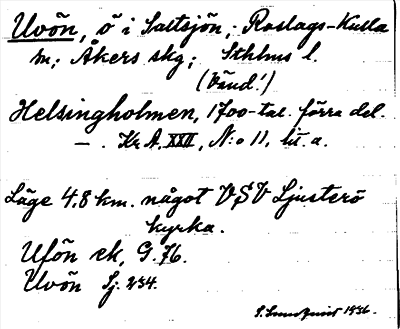 Uvön, ö i Saltsjön; Roslags-Kulla
sn; Åkers skg; Sthlms l.
(Vänd!)
Helsingholmen, 1700-tal. förra del.
— . Kr. A. XXII, N:o 11, lit. a.
Läge 4,8 km. något VSV Ljusterö
kyrka.
Ufön ek, G. 76.
Uvön Sj. 234.
1936.